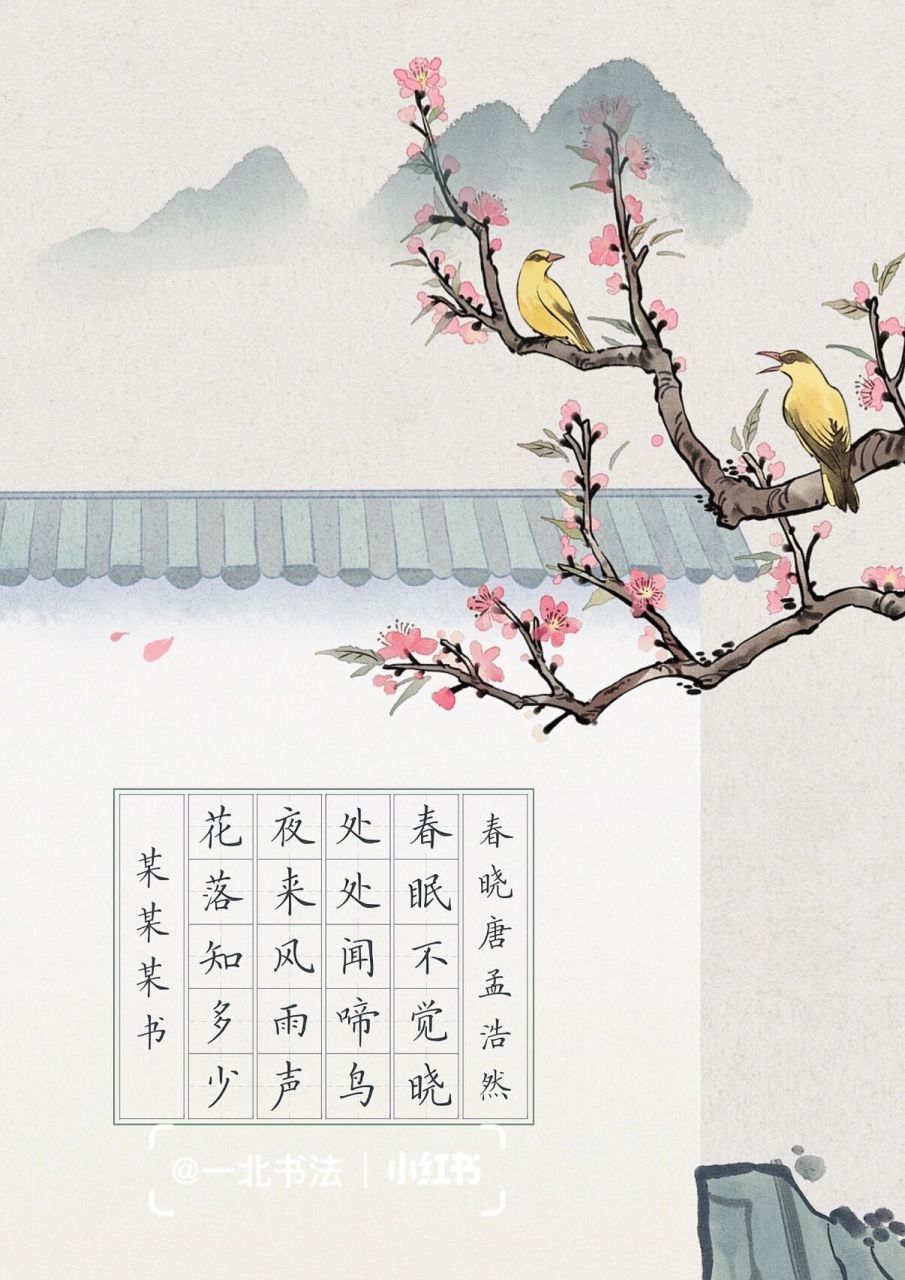 春晓唐孟浩然
春眠不觉晓
处处闻啼鸟
夜来风雨声
花落知多少
某某某书
@一北书法 | 小红书